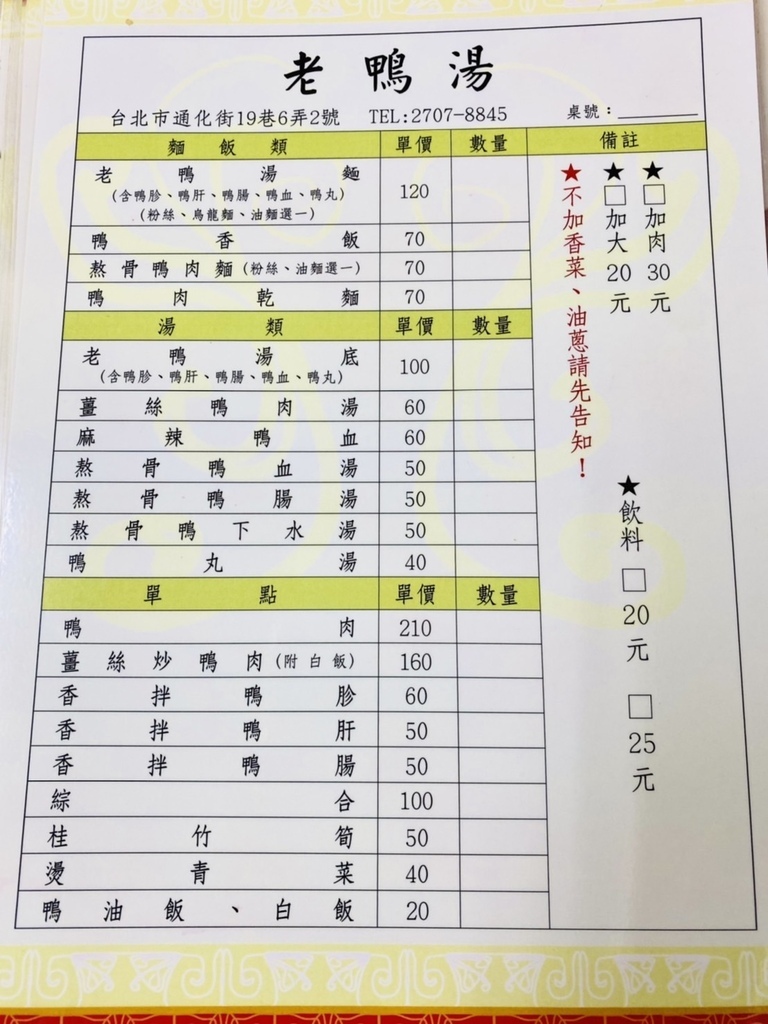 老鴨湯
台北市通化街19巷6弄2號 TEL:2707-8845 桌號：
麵飯類 單價 數量 備註
老鴨湯麵 120
(含鴨胗、鴨肝、鴨腸、鴨血、鴨丸)
(粉絲、烏龍麵、油麵選一)
鴨香飯 70
熬骨鴨肉麵(粉絲、油麵選一) 70
鴨肉乾麵 70
湯類 單價 數量
老鴨湯底 100
(含鴨胗、鴨肝、鴨腸、鴨血、鴨丸)
薑絲鴨肉湯 60
麻辣鴨血 60
熬骨鴨血湯 50
熬骨鴨腸湯 50
熬骨鴨下水湯 50
鴨丸湯 40
單點 單價 數量
鴨肉 210
薑絲炒鴨肉(附白飯) 160
香拌鴨胗 60
香拌鴨肝 50
香拌鴨腸 50
綜合 100
桂竹筍 50
燙青菜 40
鴨油飯、白飯 20
★□加肉30元
★□加大20元
★不加香菜、油蔥請先告知！
★飲料□20元 □25元